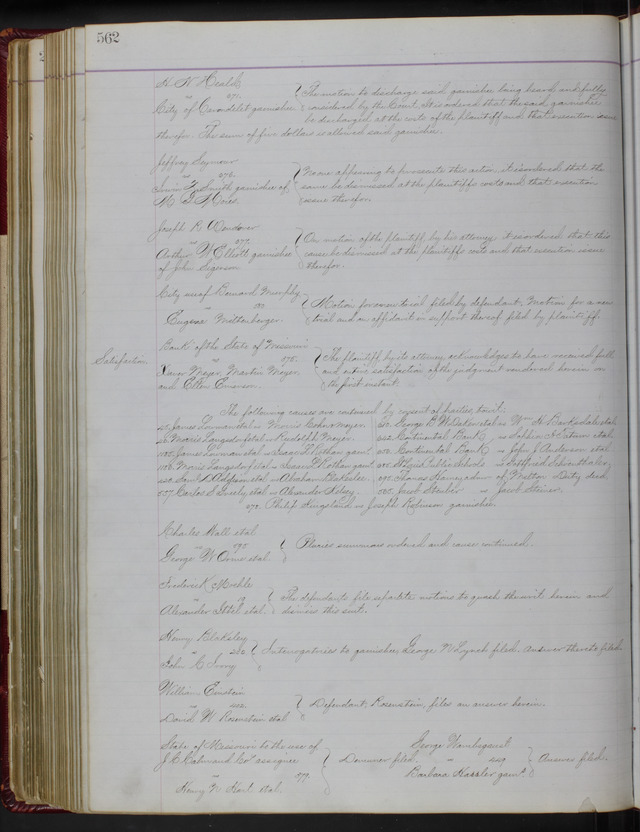 562
H. N. Heald
City of Carondelet garnishee
The motion to discharge said garnishee being heard and fully
considered by the Court, it is ordered that the said garnishee
be discharged at the costs of the plaintiff and that execution issue
therefor. The sum of five dollars is allowed said garnishee.
Jeffrey Seymour
" 276.
garnishee of
None appearing to prosecute this action, it is ordered that the
same be dismissed at the plaintiffs costs and that execution
issue therefor.
Joseph R
" 277.
Arthur W Elliott garnishee
of John Sigerson
On motion of the plaintiff by his attorney it is ordered that this
cause be dismissed at the plaintiffs costs and that execution issue
therefor.
City use of Bernard Murphy
Eugene Miltenberger.
Motion for new trial filed by defendant. Motion for a new
trial and an affidavit in support thereof filed by plaintiff.
Satisfaction
Bank of the State of Missouri
" 275.
Meyer, Martin Meyer,
and Ellen Emerson.
The plaintiff by its attorney acknowledges to have received full
and entire satisfaction of the judgment rendered herein on
the first instant.
The following causes are continued by consent of parties, towit:
James Lowman etal vs Morris Cohn Meyer
Morris Langsdorf etal vs Rudolph Meyer
James Lowman etal vs Isaac L Rothan garnt.
Morris Langsdorf etal vs Isaac L Rothan garnt.
Saml L Adlefson etal vs Abraham Bakeslee.
Carlos S Greely etal vs Alexander Kelsey.
George B W Baker etal vs Wm H Barksdale etal
Continental Bank vs Sophia H Tatum etal
Continental Bank vs John J Anderson etal
St Louis Public Schools vs Gottfried Schoenthaler
Thomas Haney admr of Walton Doty decd.
Jacob Steuber vs Jacob Steiner.
Philip Kingsland vs Joseph Robinson garnishee
Charles Wall etal
" 295
George W Orme etal
Pluries summons ordered and cause continued.
Frederick Mohle
" 19
Alexander Ittel etal.
The defendants file separate motions to quash the writ herein and
dismiss this suit.
Henry Blaksley
" 282
John C Ivory
Interrogatories to garnishee, George N Lynch filed. Answer thereto filed.
William Einstein
" 402
David W Rosenstein etal
Defendant, Rosenstein, files an answer herein.
State of Missouri to the use of
assignee
" 277.
Henry N Hart etal.
Demurrer filed.
George Wambsganst
" 449
Barbara Hassler garnt.
Answer filed.